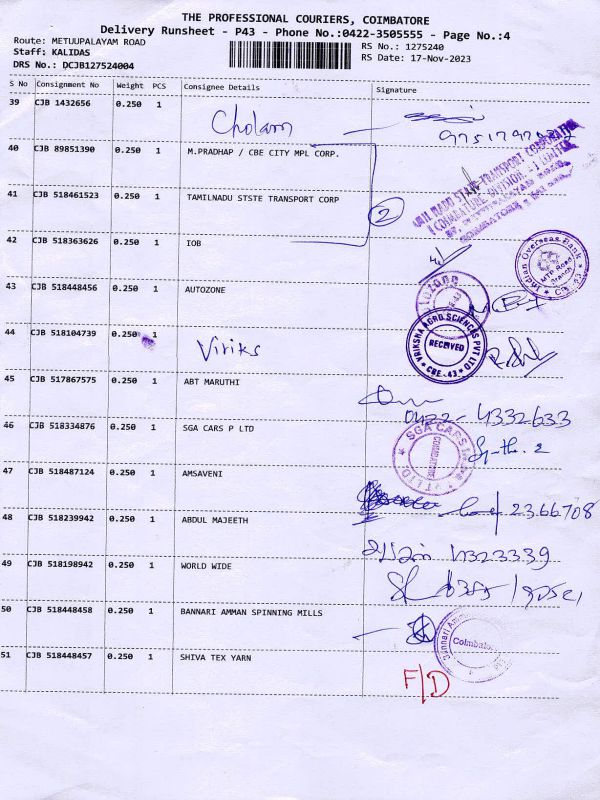 THE PROFESSIONAL COURIERS, COIMBATORE
Delivery Runsheet - P43 - Phone No.:0422-3505555 - Page No.:4
Route: METUUPALAYAM ROAD
Staff: KALIDAS
DRS No.: DCJB127524004
RS No.: 1275240
RS Date: 17-Nov-2023
S No Consignment No Weight PCS Consignee Details Signature
39 CJB 1432656 0.250 1 Cholam
40 CJB 89851390 0.250 1 M.PRADHAP / CBE CITY MPL CORP.
41 CJB 518461523 0.250 1 TAMILNADU STSTE TRANSPORT CORP
2
42 CJB 518363626 0.250 1 IOB
Indian Overseas Bank
MTP Road
Branch
43 CJB 518448456 0.250 1 AUTOZONE
44 CJB 518104739 0.250 1 Viriks
VRIKSHA AGRO SCIENCES PVT LTD
RECEIVED
CBE - 43
45 CJB 517867575 0.250 1 ABT MARUTHI
0422- 4332633
46 CJB 518334876 0.250 1 SGA CARS P LTD
SGA CARS
COIMBATORE
47 CJB 518487124 0.250 1 AMSAVENI
2366708
48 CJB 518239942 0.250 1 ABDUL MAJEETH
49 CJB 518198942 0.250 1 WORLD WIDE
50 CJB 518448458 0.250 1 BANNARI AMMAN SPINNING MILLS
51 CJB 518448457 0.250 1 SHIVA TEX YARN
F/D